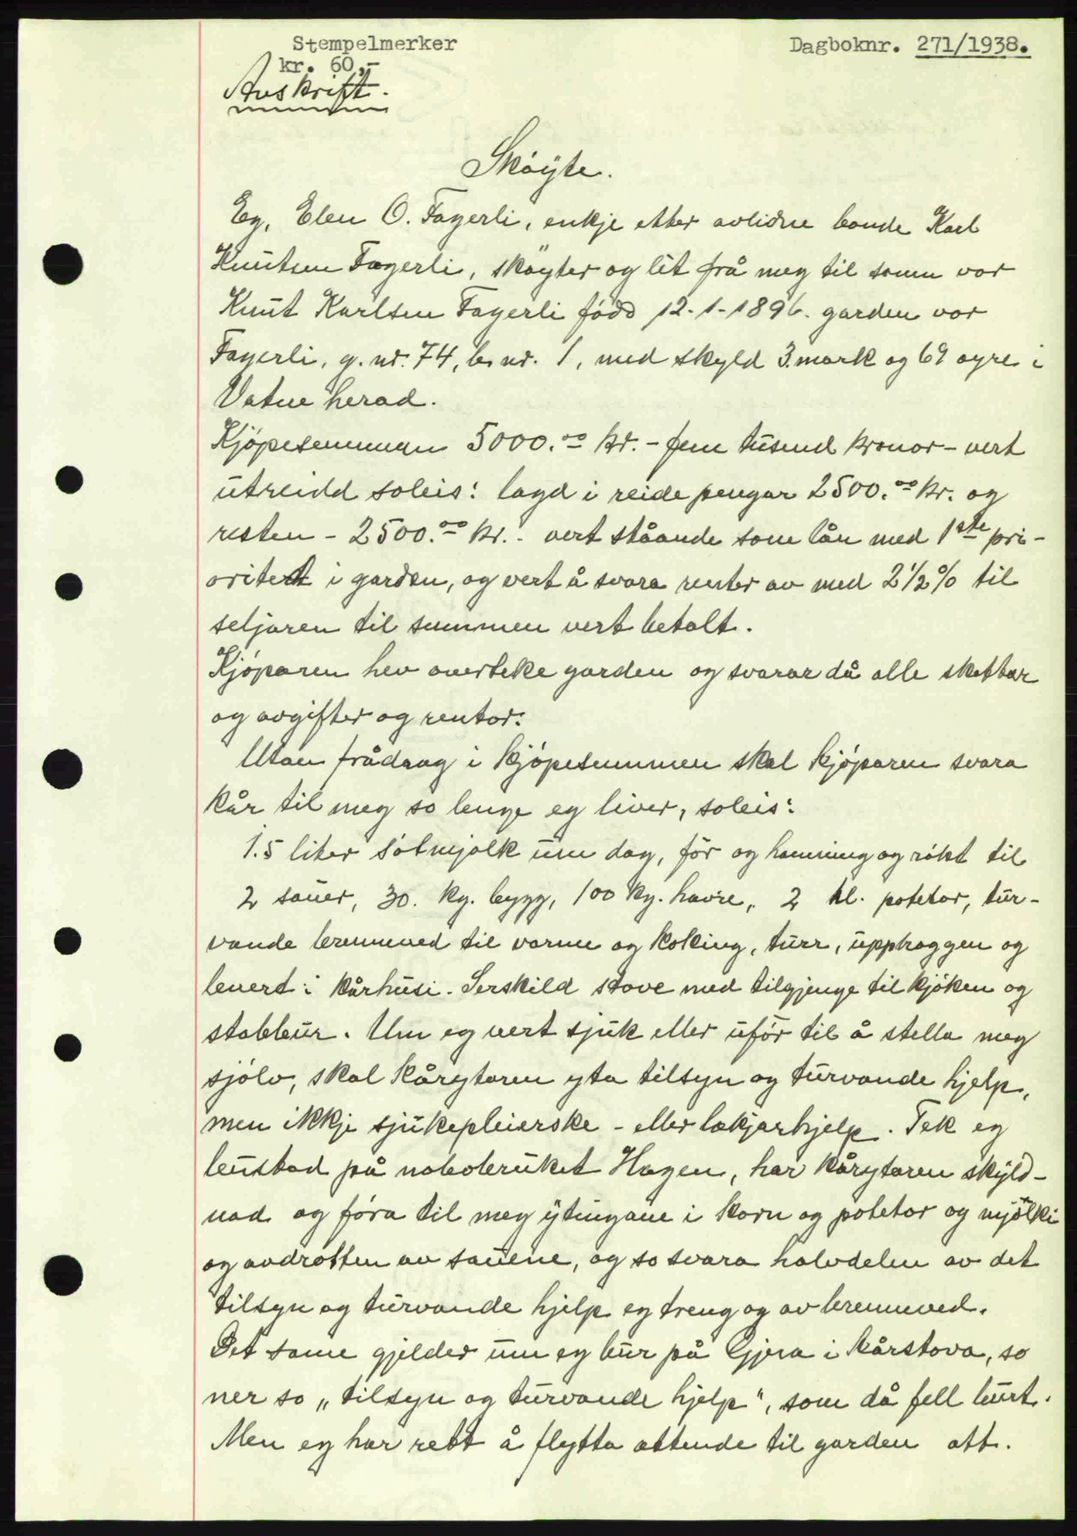 Stempelmerker
kr. 60,-
Dagboknr. 271/1938.
Avskrift.
Skøyte.
Eg, Elen O. Fagerli, enkje etter avlidne bonde Karl
Knutsen Fagerli, skøyter og lét frå meg til sonen vor
Knut Karlsen Fagerli fødd 12-1-1896. garden vor
Fagerli, g. nr. 74, b. nr. 1, med skyld 3 mark og 69 øyre i
Vatne herad.
Kjøpesummen 5000.00 kr. - fem tusend kronor - vert
utreidd soleis: lagd i reide pengar 2500.00 kr. og
resten - 2500.00 kr. - vert ståande som lån med 1ste pri-
oritet i garden, og vert å svara renter av med 2 1/2 % til
seljaren til summen vert betalt.
Kjøparen hev overteke garden og svarar då alle skattar
og avgifter og rentor.
Utan frådrag i kjøpesummen skal kjøparen svara
kår til meg so lenge eg liver, soleis:
1.5 liter søtmjølk um dag, fór og hamning og røkt til
2 sauer, 30. kg. bygg, 100 kg. havre, 2 hl. potetor, tur-
vande brenneved til varme og koking, turr, upphoggen og
levert i kårhusi. Serskild stove med tilgjenge til kjøken og
stabbur. Um eg vert sjuk eller ufør til å stella meg
sjølv, skal kårytaren yta tilsyn og turvande hjelp,
men ikkje sjukepleierske - eller lækjarhjelp. Tek eg
bustad på nabobruket Hagen, har kårytaren skyld-
nad og føra til meg ytingane i korn og potetor og mjølki
og avdrotten av sauene, og so svara halvdelen av det
tilsyn og turvande hjelp eg treng og av brenneved.
Det same gjelder um eg bur på Gjera i kårstova, so
ner so „tilsyn og turvande hjelp", som då fell burt.
Men eg har rett å flytta attende til garden att.